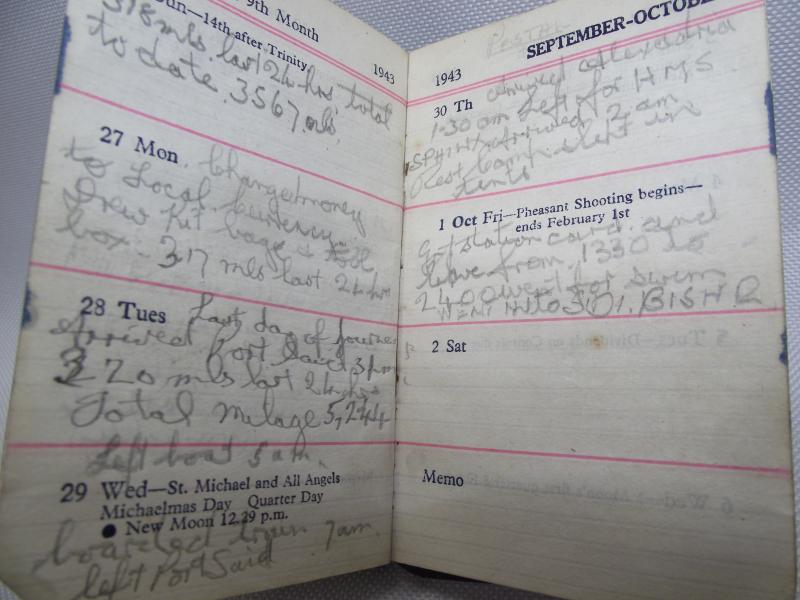 9th Month
Sun—14th after Trinity
1943
318 mls last 24 hrs total
to date 3567 mls
27 Mon Changed money
to Local Currency
Drew Kit bags &
box - 317 mls last 24 hrs
28 Tues Last day of journey
arrived Port Said 3 pm
320 mls last 24 hrs
Total Milage 5,244
Left boat 5 am
29 Wed—St. Michael and All Angels
Michaelmas Day Quarter Day
● New Moon 12.29 p.m.
boarded train 7 am.
left Port Said
POSTAL
1943 SEPTEMBER-OCTOBER
30 Th arrived alexandria
1-30 am Left for HMS
SPHINX arrived 2 am
Rest Camp went in
tents
1 Oct Fri—Pheasant Shooting begins—
ends February 1st
Got station card and
leave from 1330 to
2400 went for swim
WENT INTO 301. BISHR
2 Sat
Memo